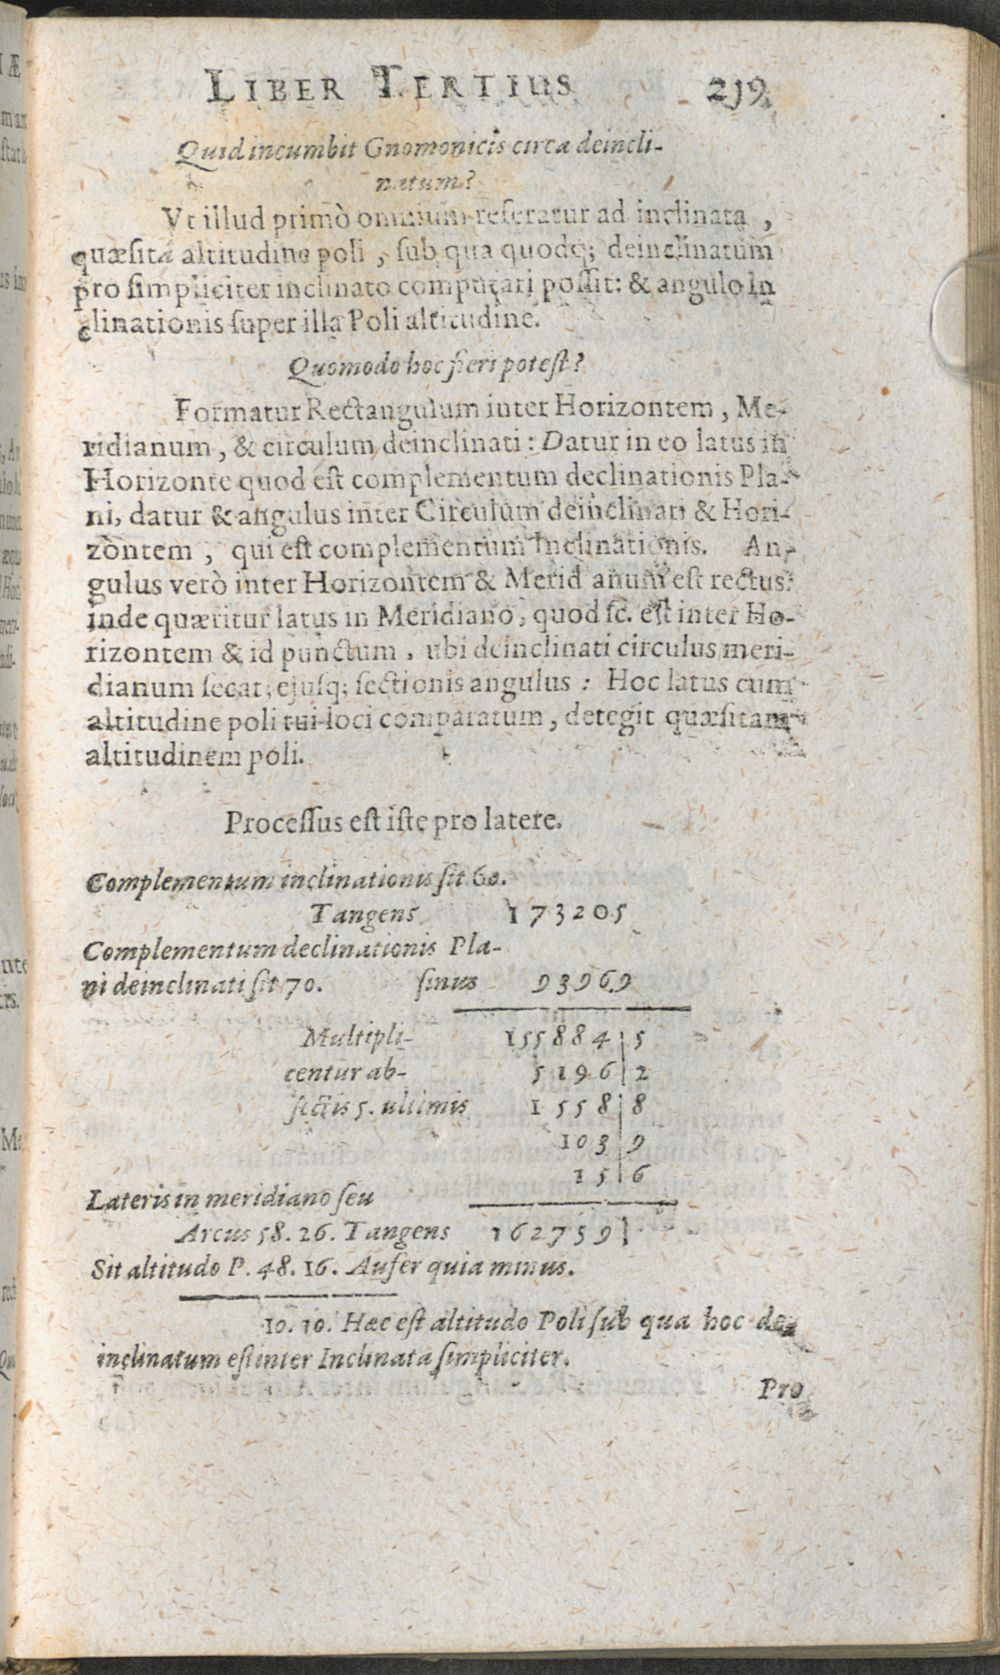 LIBER TERTIUS 219
Quid incumbit Gnomonicis circa deincli-
natum?
Vt illud primò omnium referatur ad inclinata,
quæsitâ altitudine poli, sub qua quodq; deinclinatum
pro simpliciter inclinato computari possit: & angulo In
clinationis super illa Poli altitudine.
Quomodo hoc fieri potest?
Formatur Rectangulum inter Horizontem, Me-
ridianum, & circulum deinclinati: Datur in eo latus in
Horizonte quod est complementum declinationis Pla-
ni, datur & angulus inter Circulum deinclinati & Hori-
zontem, qui est complementum Inclinationis. An-
gulus verò inter Horizontem & Merid anum est rectus:
inde quæritur latus in Meridiano, quod sc. est inter Ho-
rizontem & id punctum, ubi deinclinati circulus meri-
dianum secat; ejusq; sectionis angulus: Hoc latus cum
altitudine poli tui loci comparatum, detegit quæsitam
altitudinem poli.
Processus est iste pro latere.
Complementum inclinationis sit 60.
Tangens 173205
Complementum declinationis Pla-
ni deinclinati sit 70. sinus 93969
Multipli- 155884|5
centur ab- 5196|2
sectis 5. ultimis 1558|8
103|9
15|6
Lateris in meridiano seu
Arcus 58. 26. Tangens 162759|
Sit altitudo P. 48. 16. Aufer quia minus.
10. 10. Hæc est altitudo Poli sub qua hoc de
inclinatum est inter Inclinata simpliciter.
Pro